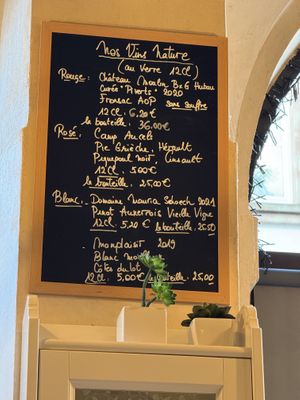 Nos Vins Nature
(au verre 12cl
Rouge: Château Moulin
Cuvée "Piverts" 2020
Fronsac AOP sans soufre
12cl. 6.20€
la bouteille. 36,00€
Rosé: Camp Aucels
Pie Grièche, Hérault
Piquepoul noir, Cinsault
12cl. 5.00€
la bouteille 25.00€
Blanc. Domaine Maurice Schoech 2021
Pinot Auxerrois Vieille Vigne
12cl. 5,20 la bouteille 26.50
Monplaisir 2019
Blanc
Côtes du lot
12cl. 5,00€ la bouteille 25,00